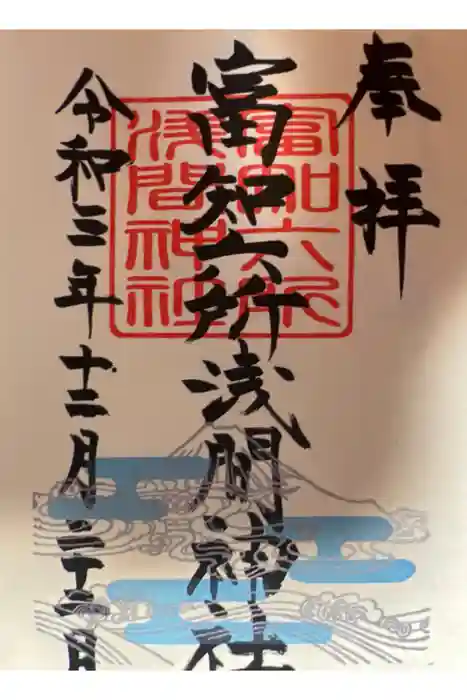 奉拝
富知六所浅間神社
令和三年十二月
富知六所
浅間神社